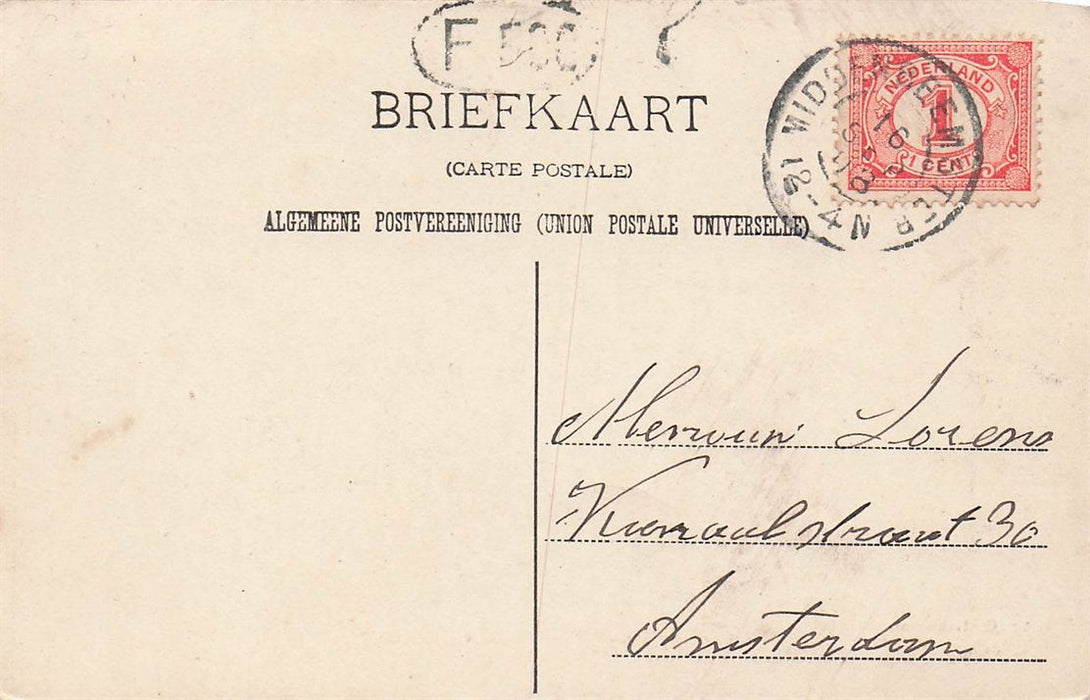 F 500
BRIEFKAART
(CARTE POSTALE)
ALGEMEENE POSTVEREENIGING (UNION POSTALE UNIVERSELLE)
NEDERLAND
1
1 CENT
12-4N
Lorens
straat 30
Amsterdam